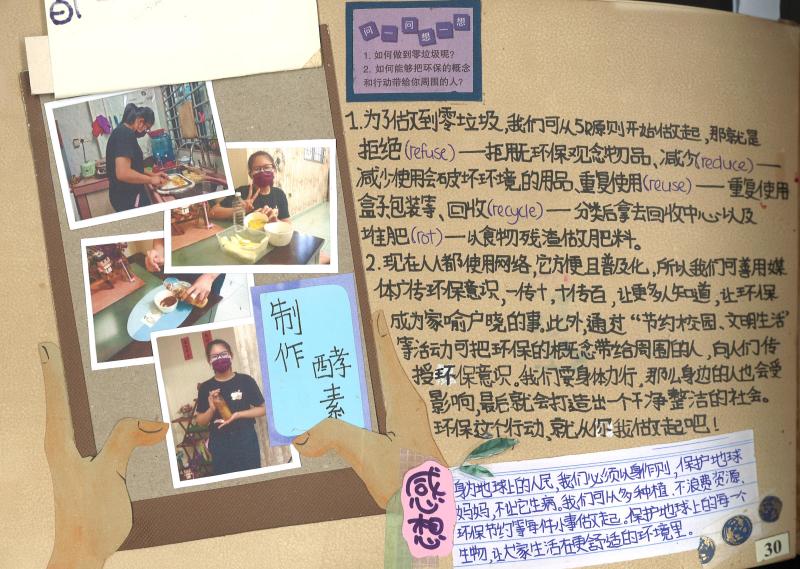 问一问想一想
1. 如何做到零垃圾呢?
2. 如何能够把环保的概念
和行动带给你周围的人?
1.为了做到零垃圾,我们可从5R原则开始做起,那就是
拒绝(refuse)——拒用无环保观念物品、减少(reduce)——
减少使用会破坏环境的用品、重复使用(reuse)——重复使用
盒子包装等、回收(recycle)——分类后拿去回收中心以及
堆肥(rot)——以食物残渣做肥料。
2.现在人人都使用网络,它方便且普及化,所以我们可善用媒
体广传环保意识,一传十,十传百,让更多人知道,让环保
成为家喻户晓的事。此外,通过“节约校园、文明生活”
等活动可把环保的概念带给周围的人,向人们传
授环保意识。我们要身体力行,那么身边的人也会受
影响,最后就会打造出一个干净整洁的社会。
环保这个行动,就从你我做起吧!
制作
酵素
感想
身为地球上的人民,我们必须以身作则,保护地球
妈妈,不让它生病。我们可从多种植、不浪费资源、
环保节约等每件小事做起。保护地球上的每一个
生物,让大家生活在更舒适的环境里。
30